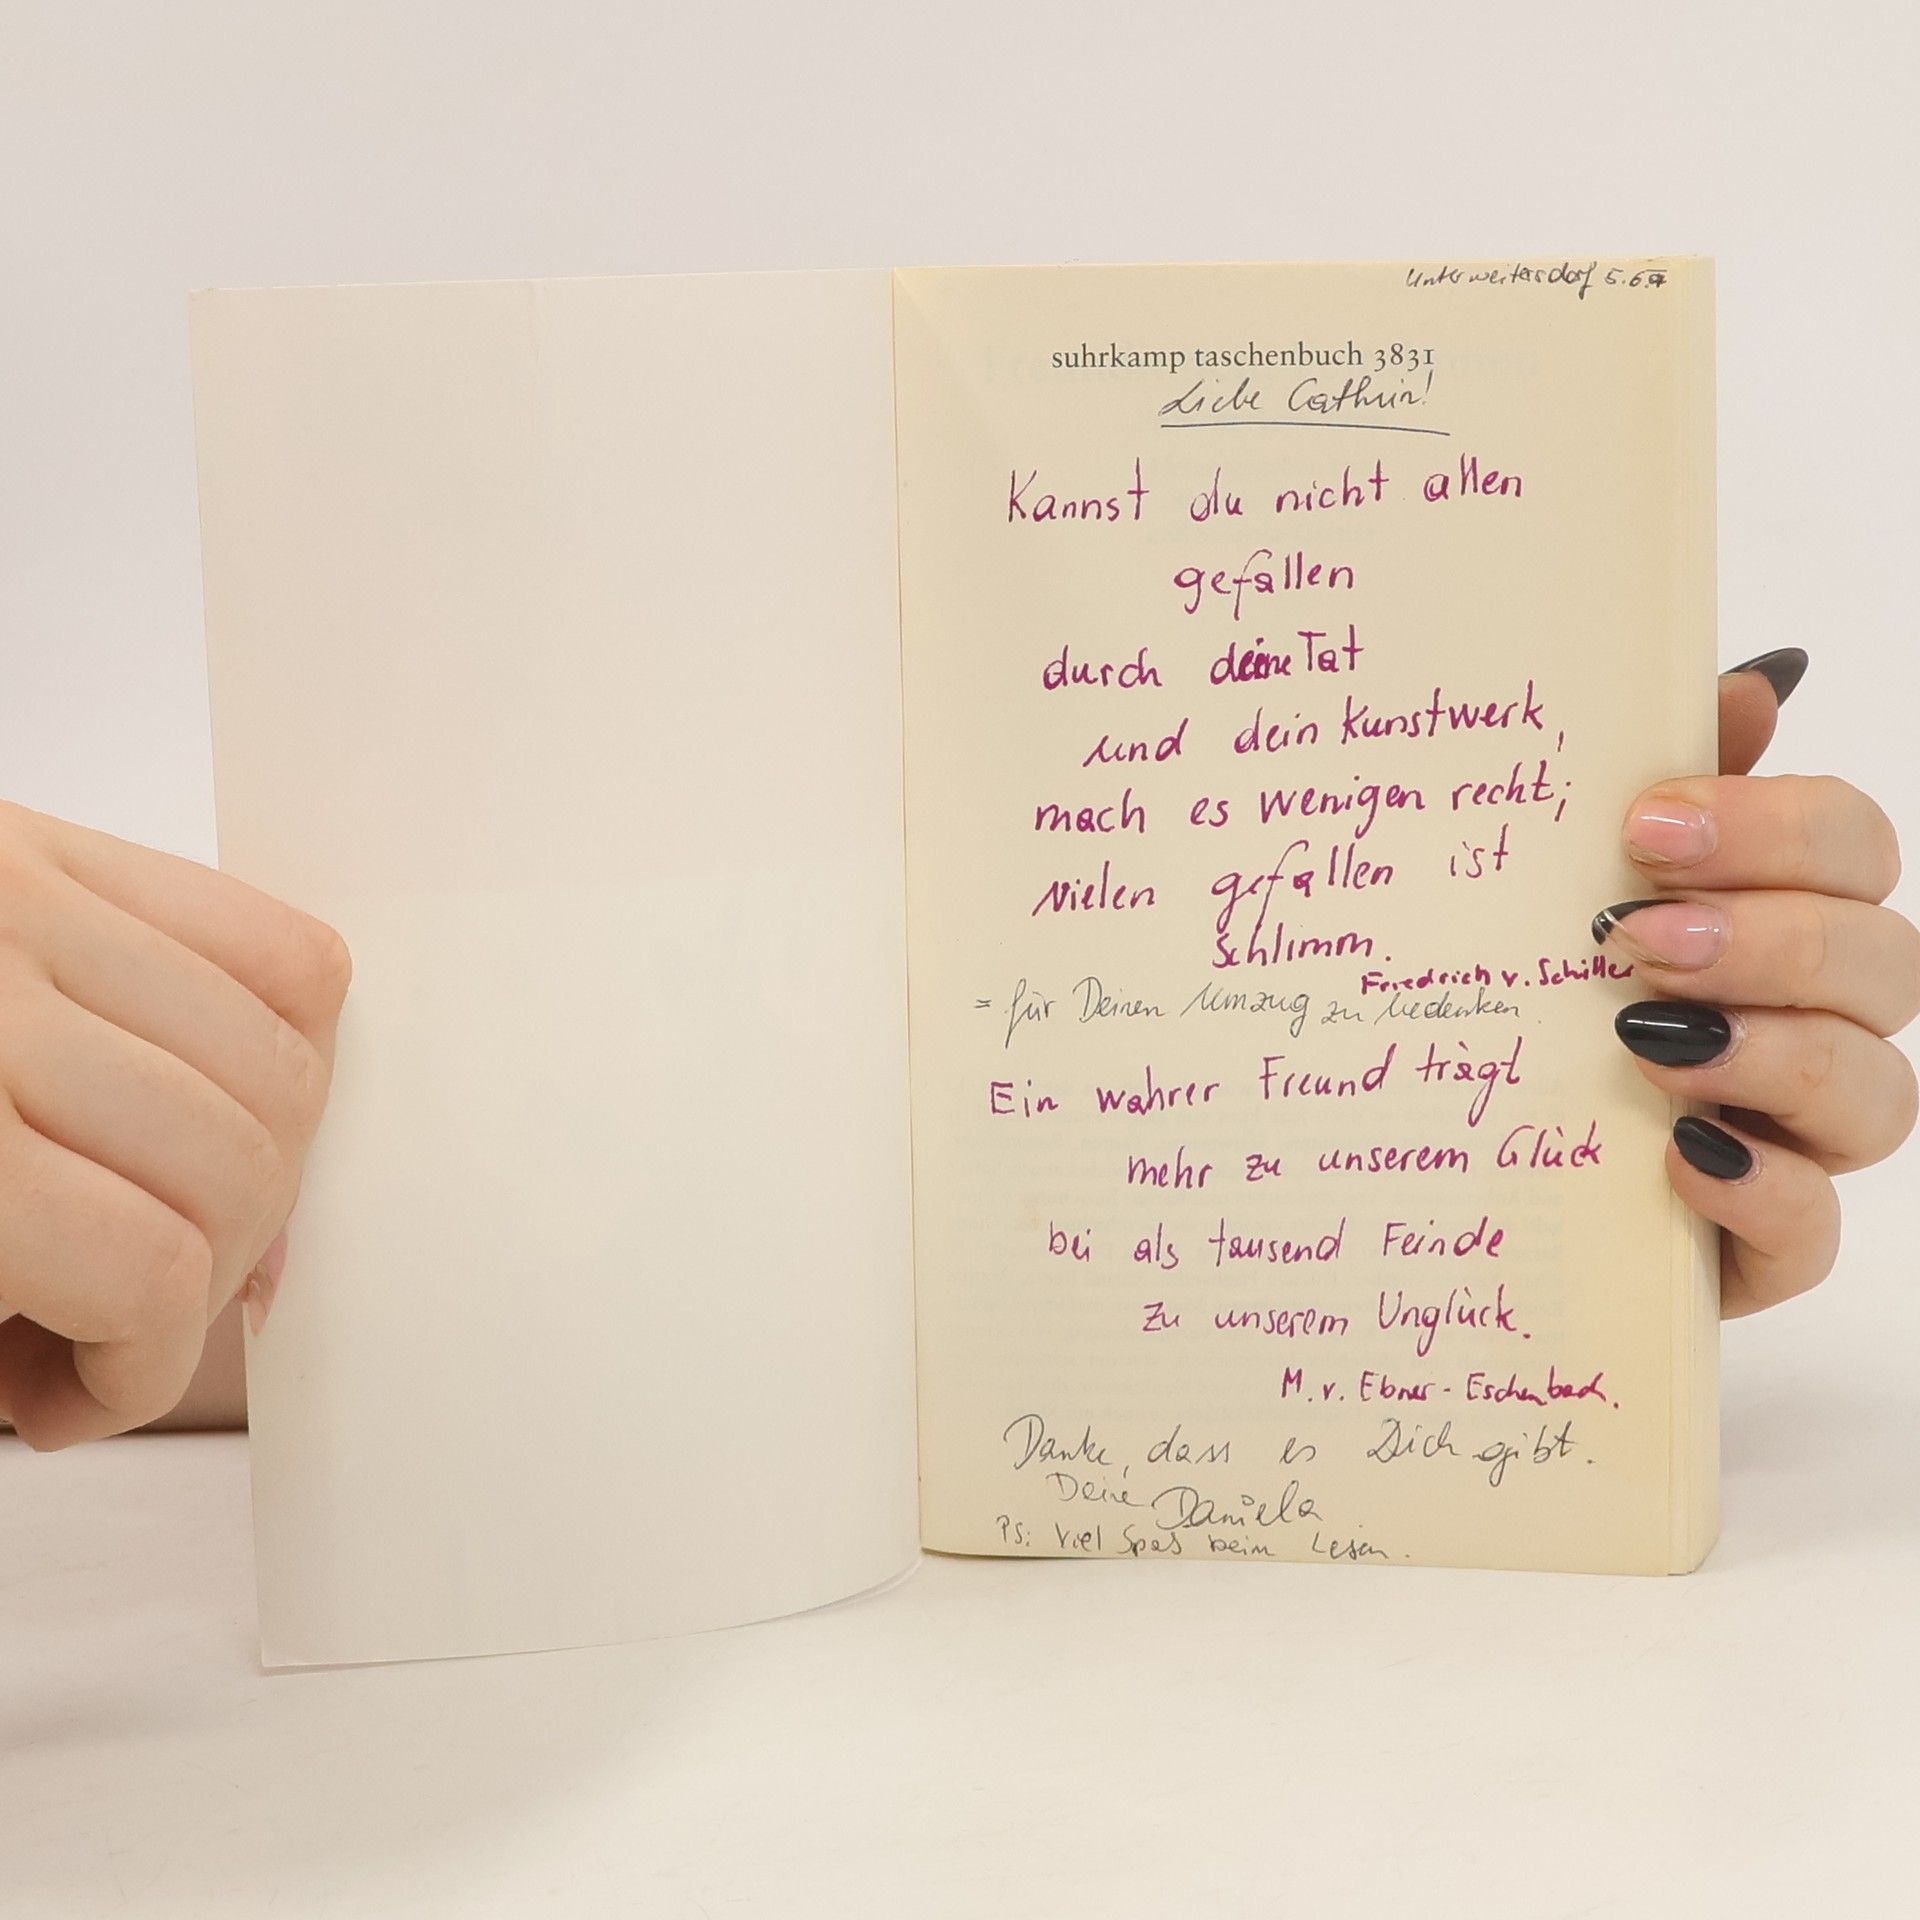 Unterweitersdorf 5.6.
suhrkamp taschenbuch 3831
Liebe Cathrin!
Kannst du nicht allen
gefallen
durch deine Tat
und dein Kunstwerk,
mach es wenigen recht;
vielen gefallen ist
schlimm.
Friedrich v. Schiller
= für Deinen Umzug zu bedenken.
Ein wahrer Freund trägt
mehr zu unserem Glück
bei als tausend Feinde
zu unserem Unglück.
M. v. Ebner-Eschenbach.
Danke, dass es Dich gibt.
Deine Daniela
PS: Viel Spas beim Lesen.